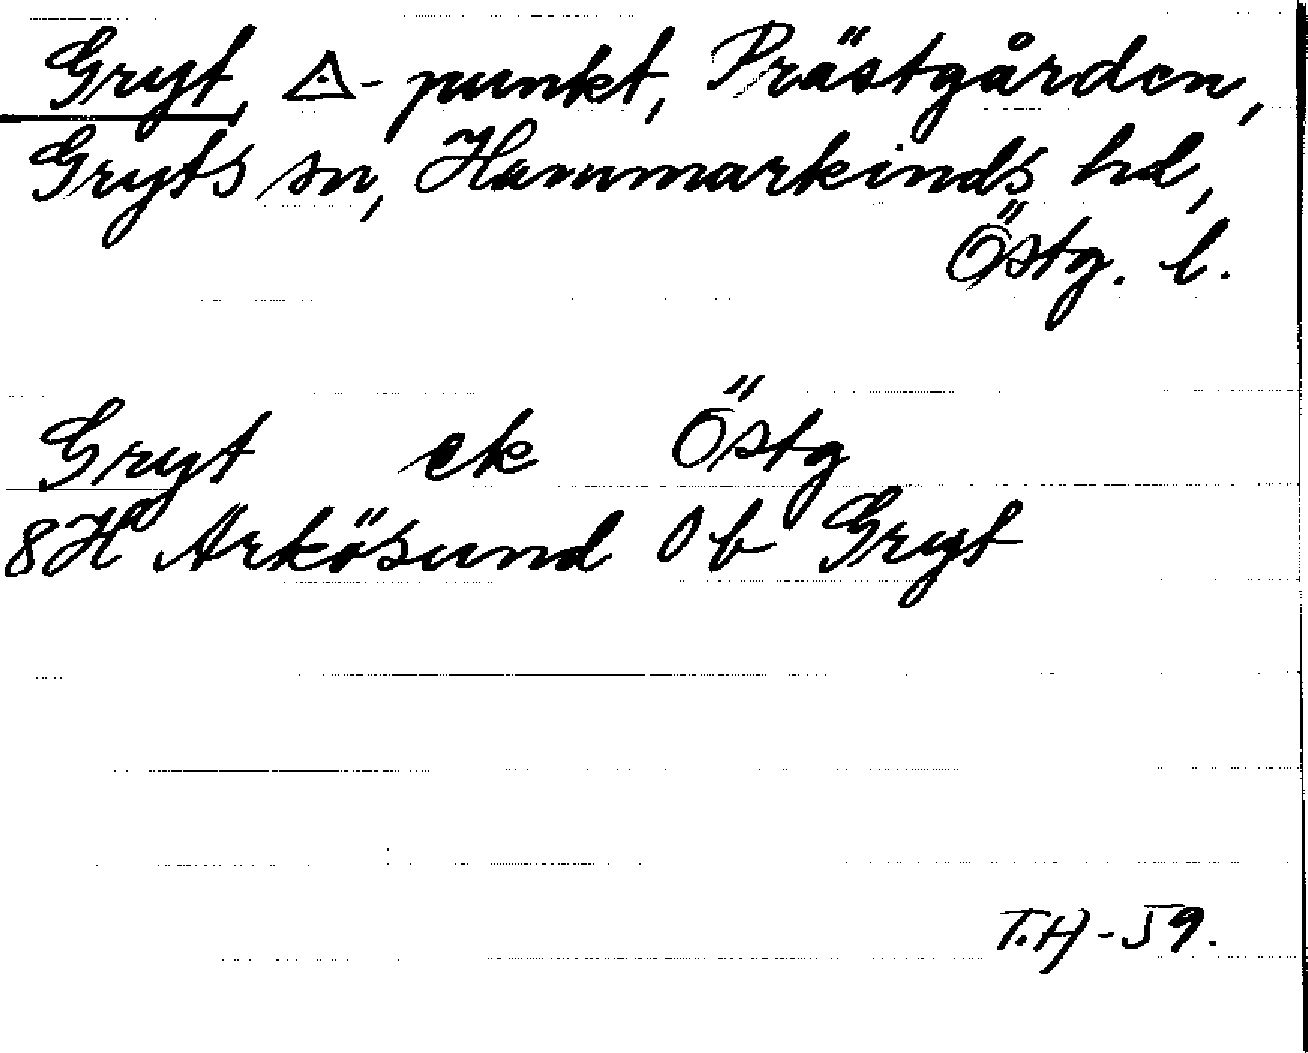 Gryt, △-punkt, Prästgården,
Gryts sn, Hammarkinds hd,
Östg. l.
Gryt ek Östg
8H Arkösund 0 b Gryt
T.H-59.